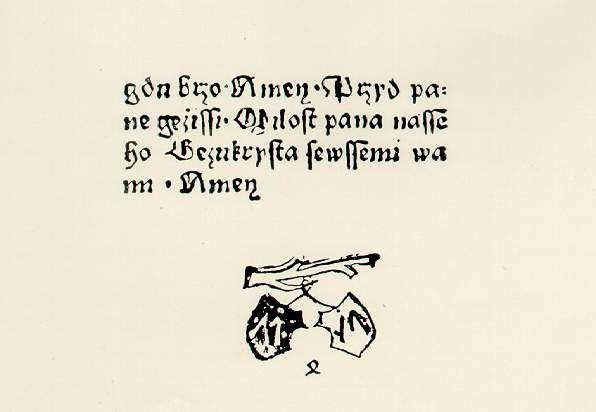 gdu brzo·Amen·Przyd pa:
ne geziſſi·Miloſt pana naſſe
ho Gezukryſta ſewſſemi wa
mi·Amen